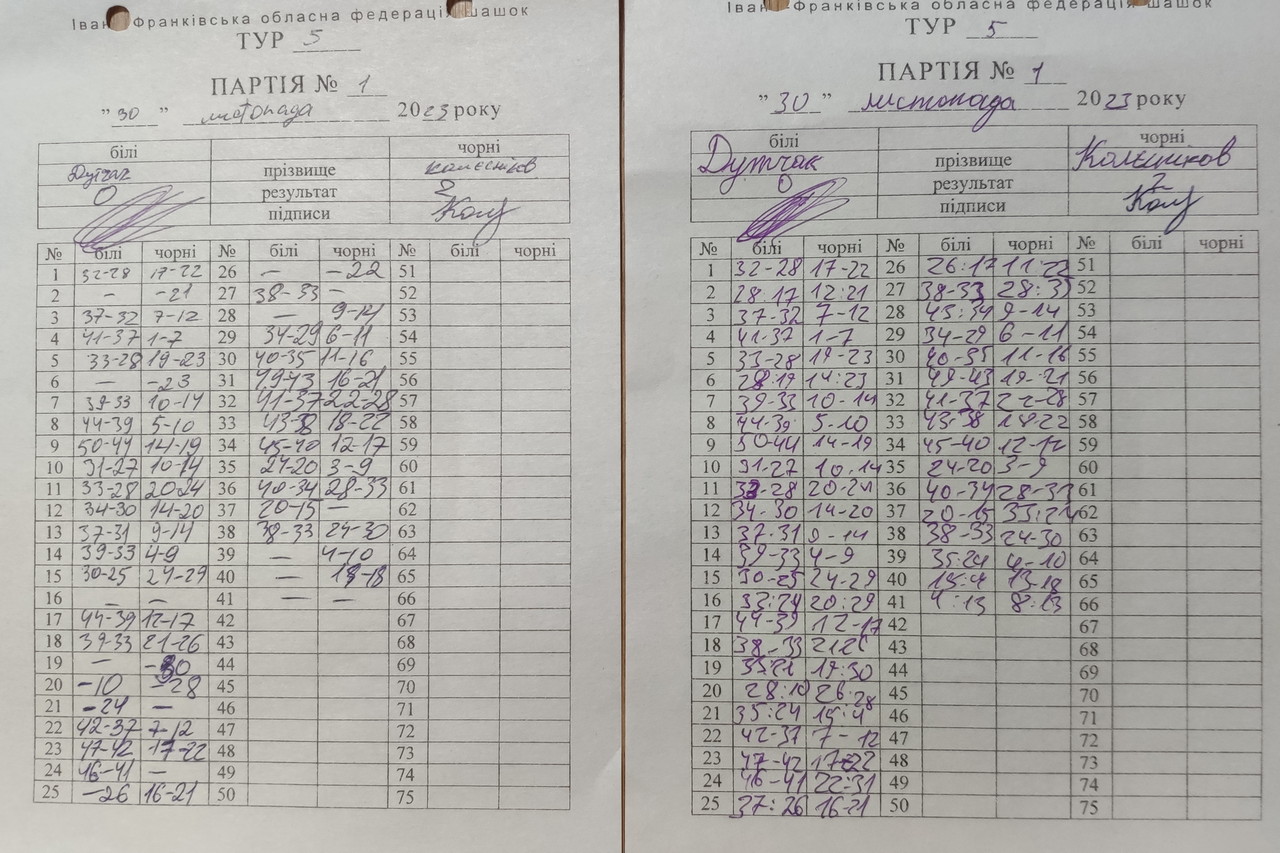 Івано-Франківська обласна федерація шашок
ТУР 5
ПАРТІЯ № 1
"30" листопада 2023 року
білі чорні
Дутчак прізвище Колєсніков
0 результат 2
підписи
№ білі чорні № білі чорні № білі чорні
1 32-28 17-22 26 — -22 51
2 – -21 27 38-33 – 52
3 37-32 7-12 28 – 9-14 53
4 41-37 1-7 29 34-29 6-11 54
5 33-28 19-23 30 40-35 11-16 55
6 — -23 31 49-43 16-21 56
7 39-33 10-14 32 41-37 22-28 57
8 44-39 5-10 33 43-38 18-22 58
9 50-44 14-19 34 45-40 12-17 59
10 31-27 10-14 35 24-20 3-9 60
11 33-28 20-24 36 40-34 28-33 61
12 34-30 14-20 37 20-15 — 62
13 37-31 9-14 38 38-33 24-30 63
14 39-33 4-9 39 — 4-10 64
15 30-25 24-29 40 — 13-18 65
16 — — 41 — — 66
17 44-39 12-17 42 67
18 39-33 21-26 43 68
19 — -30 44 69
20 -10 -28 45 70
21 -24 — 46 71
22 42-37 7-12 47 72
23 47-42 17-22 48 73
24 46-41 — 49 74
25 -26 16-21 50 75
Івано-Франківська обласна федерація шашок
ТУР 5
ПАРТІЯ № 1
"30" листопада 2023 року
білі чорні
Дутчак прізвище Колєсніков
0 результат 2
підписи
№ білі чорні № білі чорні № білі чорні
1 32-28 17-22 26 26:17 11:22 51
2 28:17 12:21 27 38-33 28:39 52
3 37-32 7-12 28 43:34 9-14 53
4 41-37 1-7 29 34-29 6-11 54
5 33-28 19-23 30 40-35 11-16 55
6 28:19 14:23 31 49-43 16-21 56
7 39-33 10-14 32 41-37 22-28 57
8 44-39 5-10 33 43-38 18-22 58
9 50-44 14-19 34 45-40 12-17 59
10 31-27 10-14 35 24-20 3-9 60
11 33-28 20-24 36 40-34 28-33 61
12 34-30 14-20 37 20-15 33:24 62
13 37-31 9-14 38 38-33 24-30 63
14 39-33 4-9 39 35:24 4-10 64
15 30-25 24-29 40 15:4 13-18 65
16 33:24 20:29 41 4:13 8:13 66
17 44-39 12-17 42 67
18 38-33 21-26 43 68
19 19:30 44 69
20 28:10 26:28 45 70
21 35:24 15:4 46 71
22 42-37 7-12 47 72
23 47-42 17-22 48 73
24 46-41 22:31 49 74
25 37:26 16-21 50 75